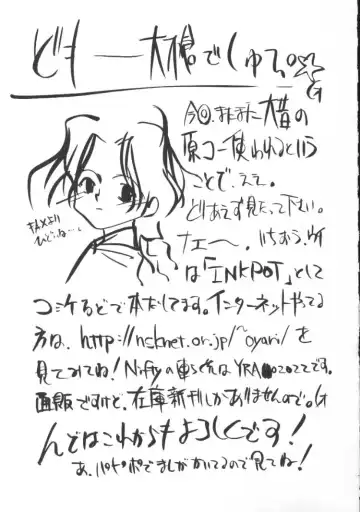 ども──大槍でしゅう。☆G
今回、まにあに大昔の
原コー使われるという
ことで、ええ。
とりあえず見たって下さい。
ナェ〜。いちおう、ウチ
は「INKPOT」として
コミケなどで本だしてます。インターネットやってる
方は、http://nsknet.or.jp/~oyari/を
見てみてね！Niftyの申し込はYRA 02022です。
通販ですけど、在庫新刊しかありませんので。G
んではこれからもよろしくです！
あ、パドポでましがかいてるので見てね！
FAXより
ひどいね…